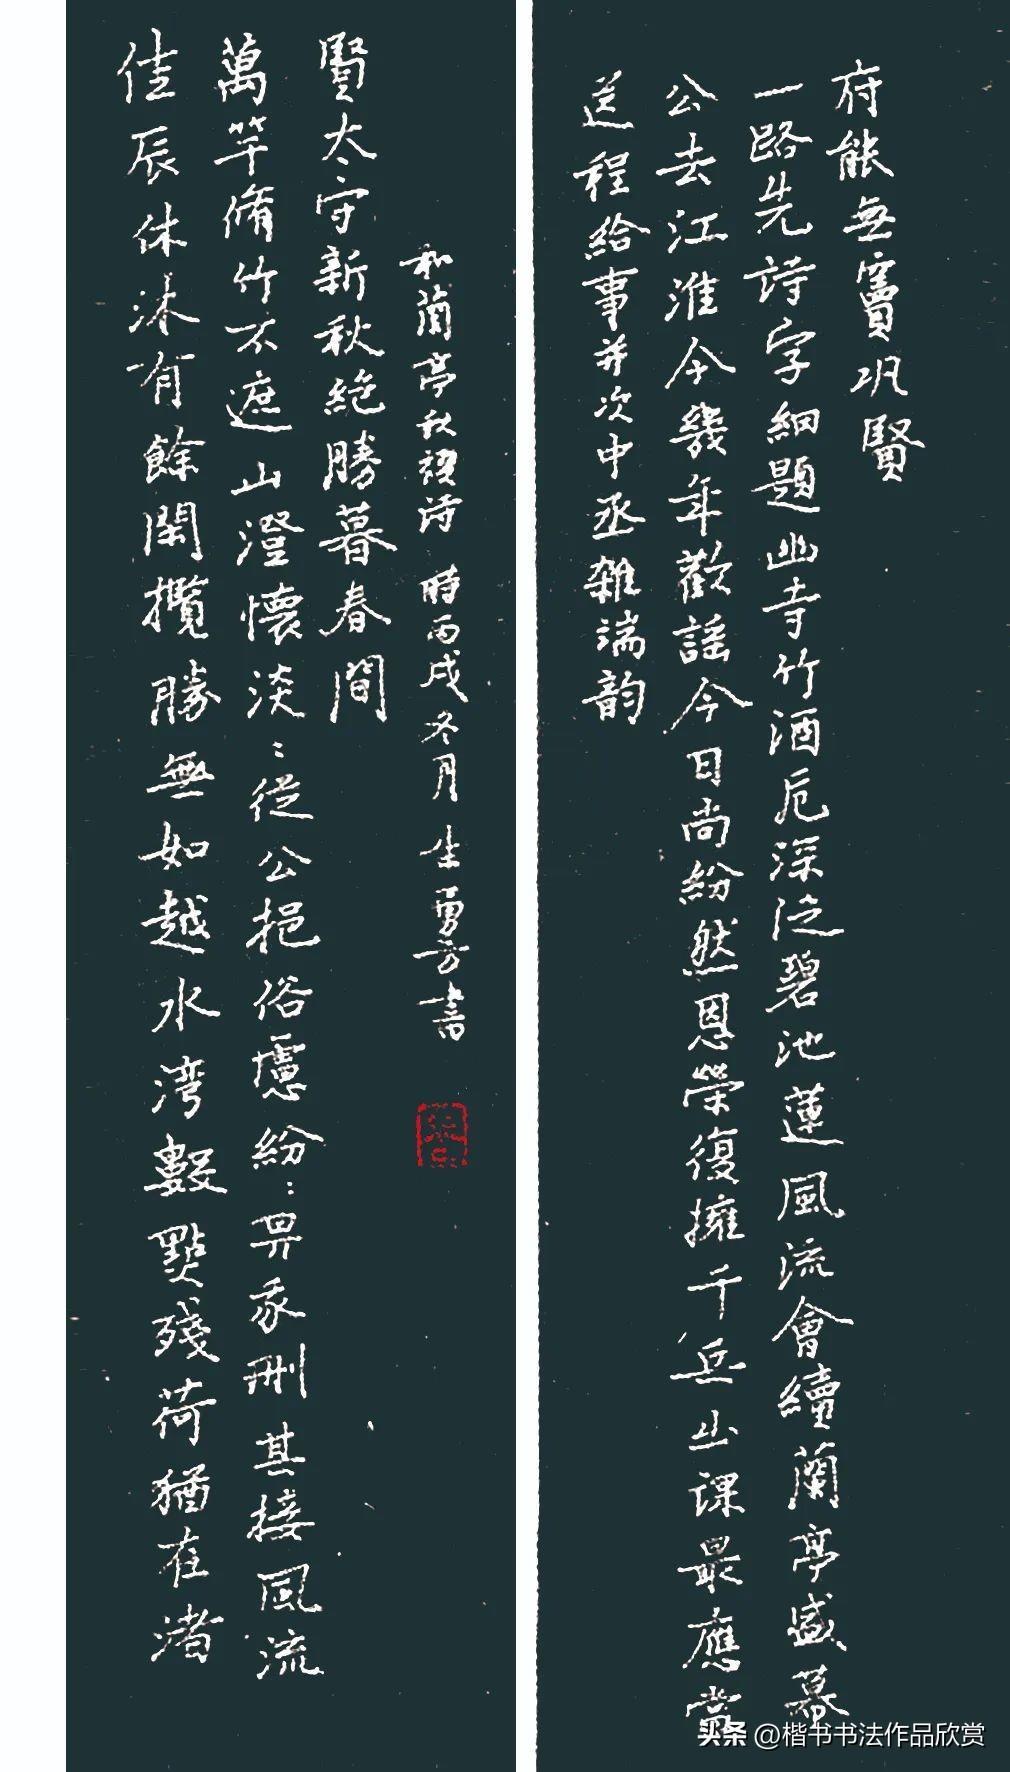 送程給事并次中丞雜端韵
公去江淮今幾年歡謠今日尚紛然恩榮復擁千兵出課最應當
一路先詩字細題幽寺竹酒卮深泛碧池蓮風流會續蘭亭盛幕
府能無竇鞏賢
佳辰休沐有餘閑攬勝無如越水湾數點殘荷猶在渚
萬竿脩竹不遮山澄懷淡〻從公挹俗慮紛〻畀我刪甚接風流
賢太守新秋絕勝暮春間
和蘭亭秋禊詩 時丙戌冬月 生勇方書
头条 @楷书书法作品欣赏